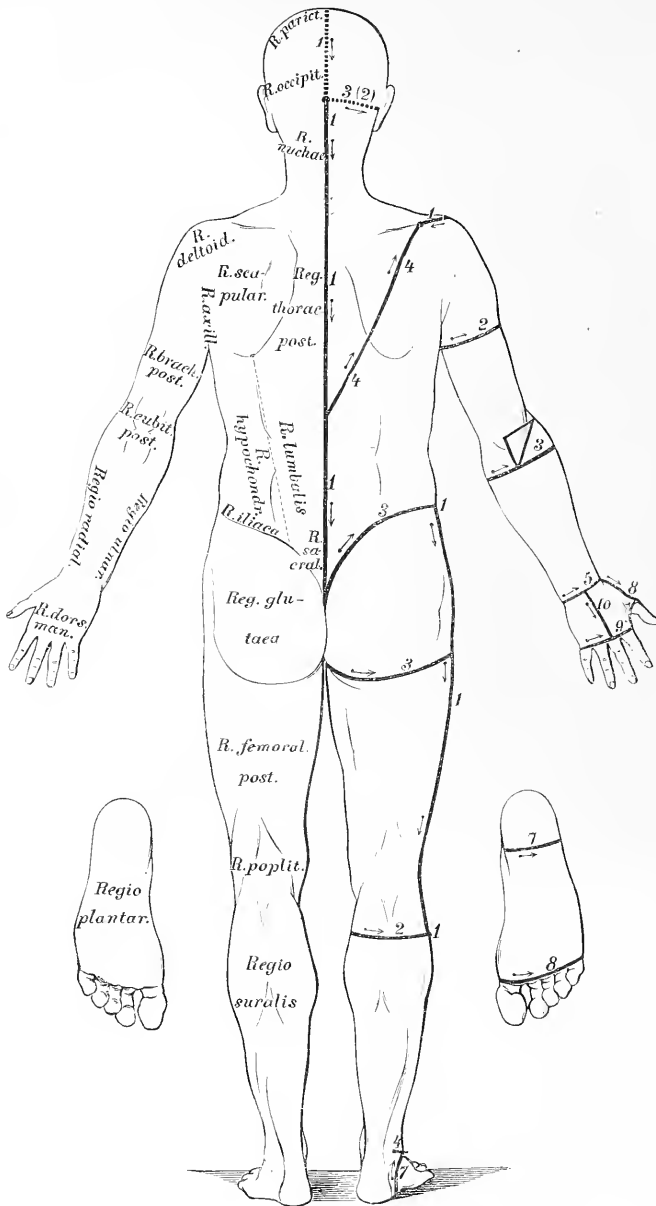 R. pariet.
1
R. occipit.
3 (2)
1
R.
nuchae
1
R.
deltoid.
R. sca-
pular.
Reg.
thorac
post.
1
4
R. axill.
2
4
R. brach.
post.
R. cubit.
post.
3
R.
hypochondr.
R. lumbalis
1
Regio radial.
Regio ulnar.
R. iliaca
3
1
R.
sa-
cral.
5
8
10
9
R. dors.
man.
Reg. glu-
taea
3
1
R. femoral.
post.
7
R. poplit.
Regio
plantar.
2
1
8
Regio
suralis
4
1